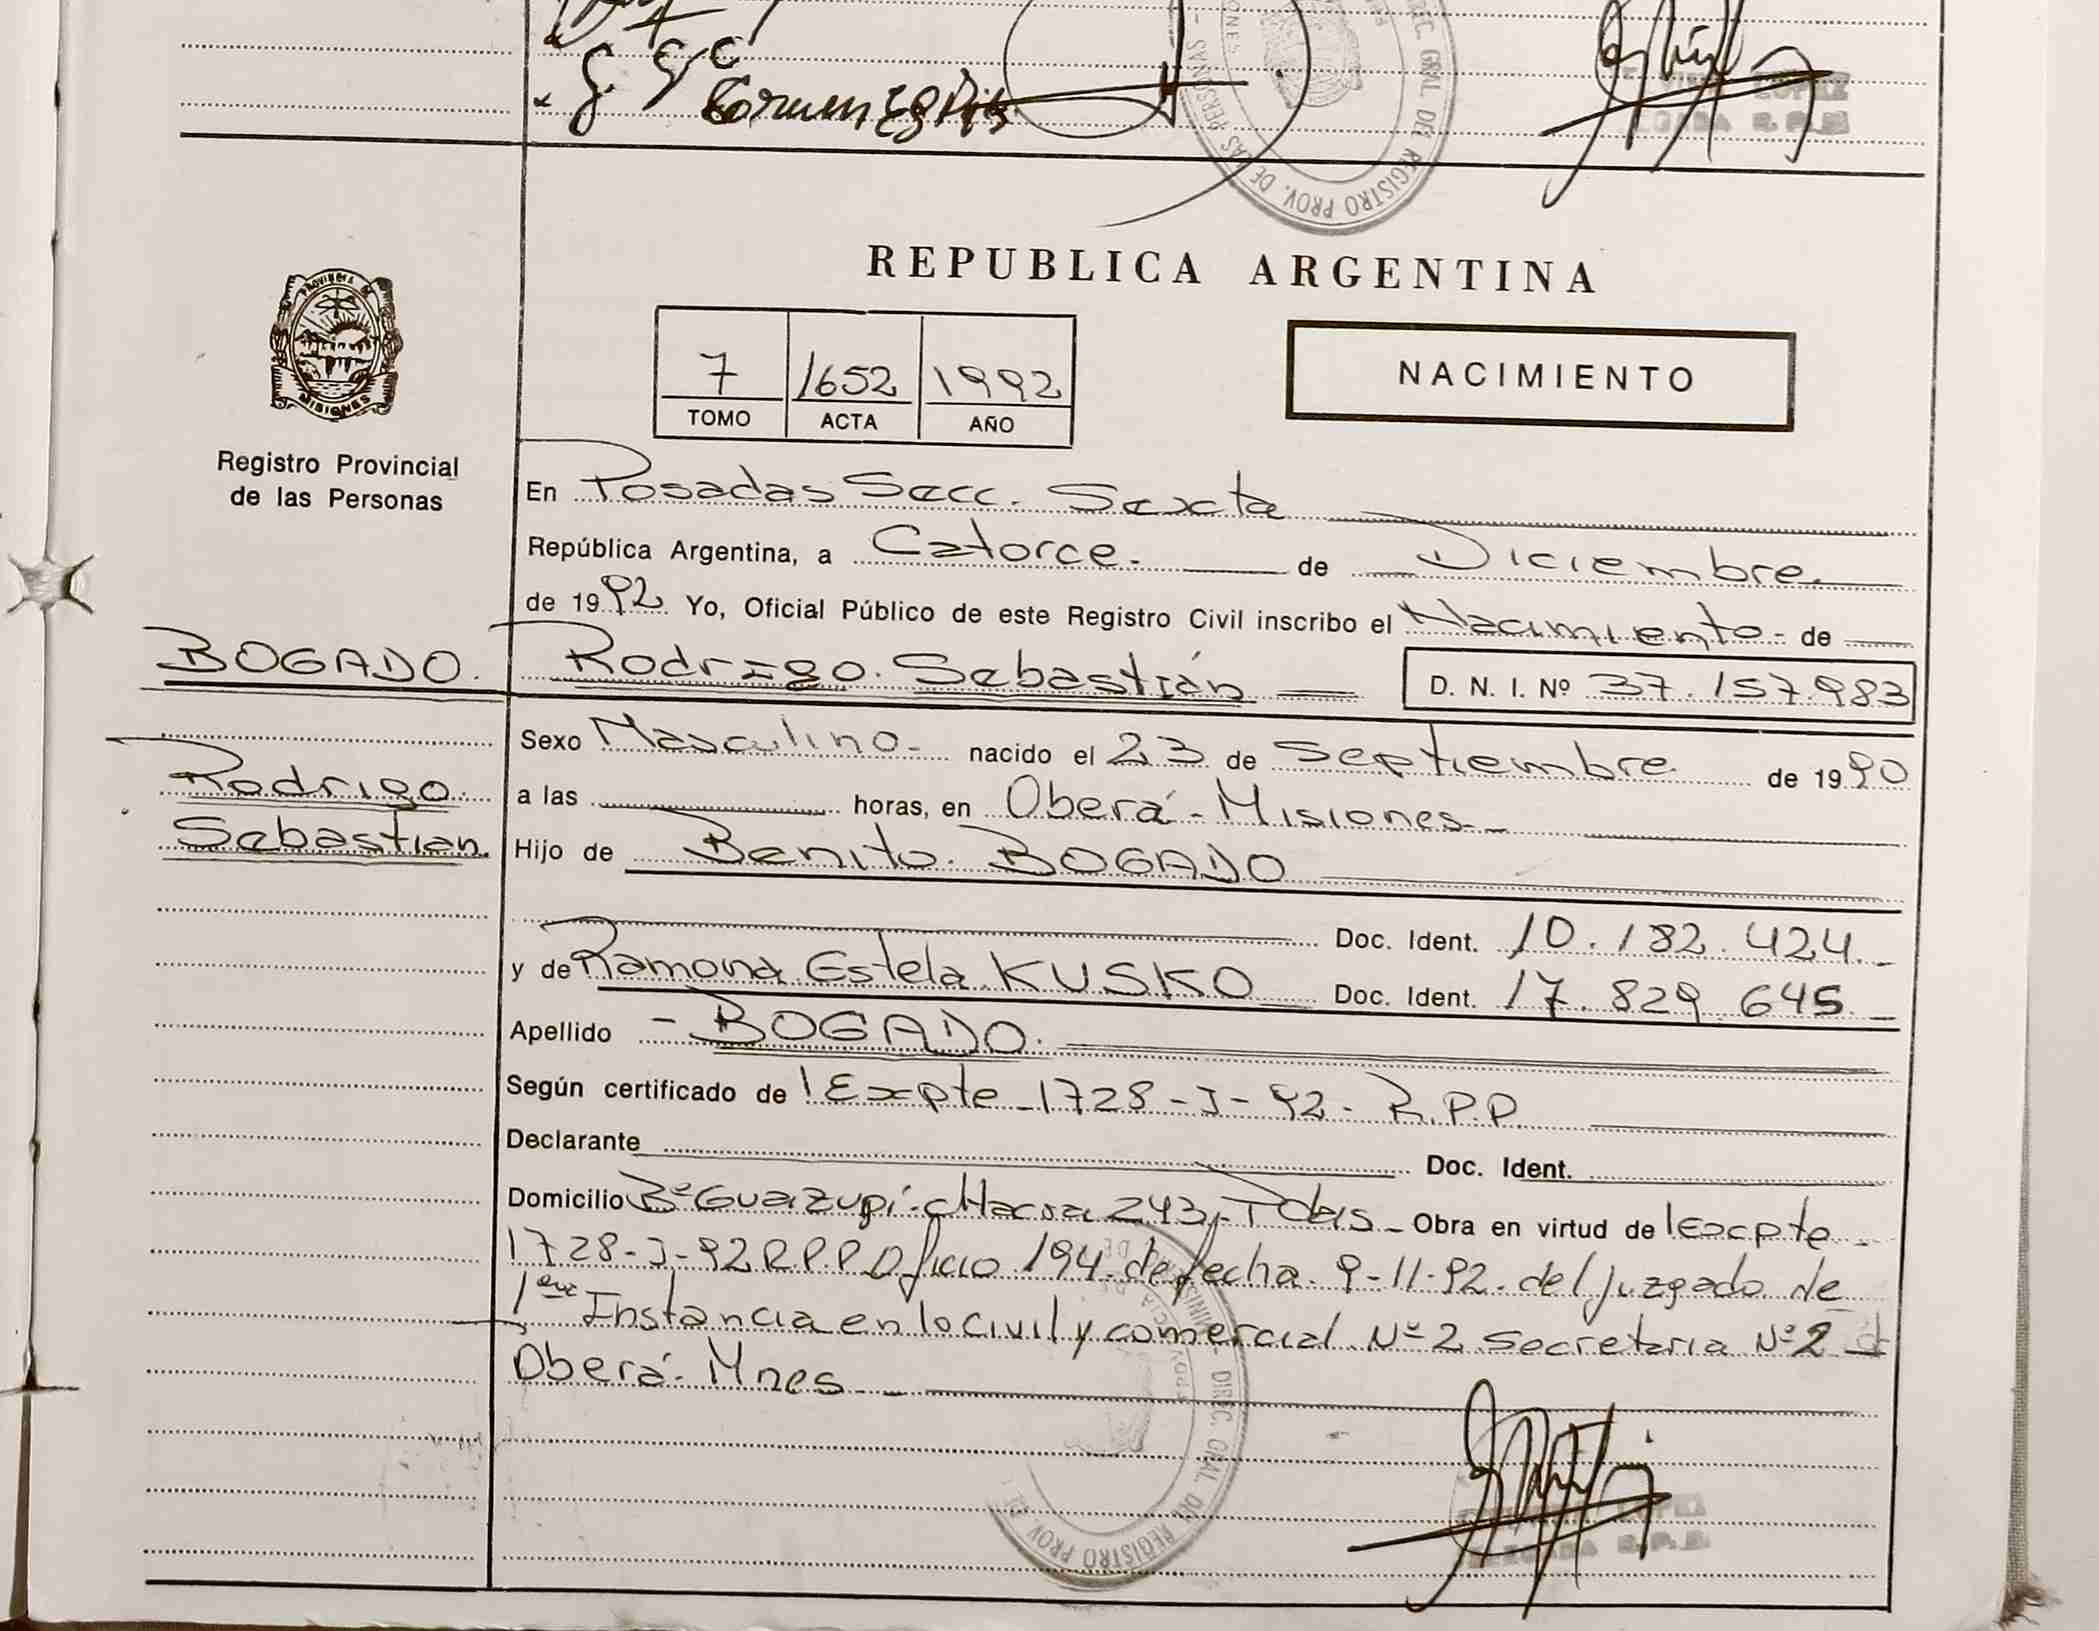 Carmen
DIREC. GRAL. DEL REGISTRO PROV. DE LAS PERSONAS - MISIONES
LOPEZ
REPUBLICA ARGENTINA
PROVINCIA DE
MISIONES
7 1652 1992
TOMO ACTA AÑO
NACIMIENTO
Registro Provincial
de las Personas
En Posadas Secc. Sexta
República Argentina, a Catorce. de Diciembre.
de 1992. Yo, Oficial Público de este Registro Civil inscribo el Nacimiento- de
BOGADO. Rodrigo. Sebastián D. N. I. Nº 37.157.983
Sexo Masculino- nacido el 23 de Septiembre de 1990
Rodrigo.
a las horas, en Oberá - Misiones-
Sebastian.
Hijo de Benito. BOGADO
Doc. Ident. 10.182.424.-
y de Ramona Estela KUSKO Doc. Ident. 17.829.645.-
Apellido - BOGADO.
Según certificado de Expte - 1728-J-92- R.P.P.
Declarante Doc. Ident.
Domicilio Bº Guazupi - chacra 243, Pdas - Obra en virtud de Expte -
1728-J-92 R.P.P. Oficio 194 de fecha 9-11-92. del juzgado de
1era Instancia en lo civil y comercial Nº 2 Secretaria Nº 2 d
Oberá- Mnes -
DIREC. GRAL. DEL REGISTRO PROV. DE